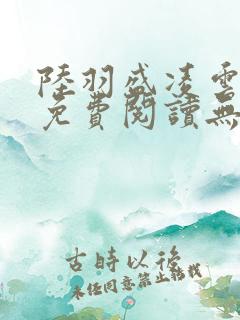 陸羽盛凌雲
免費閱讀無
古時以後
未經同意禁止轉載